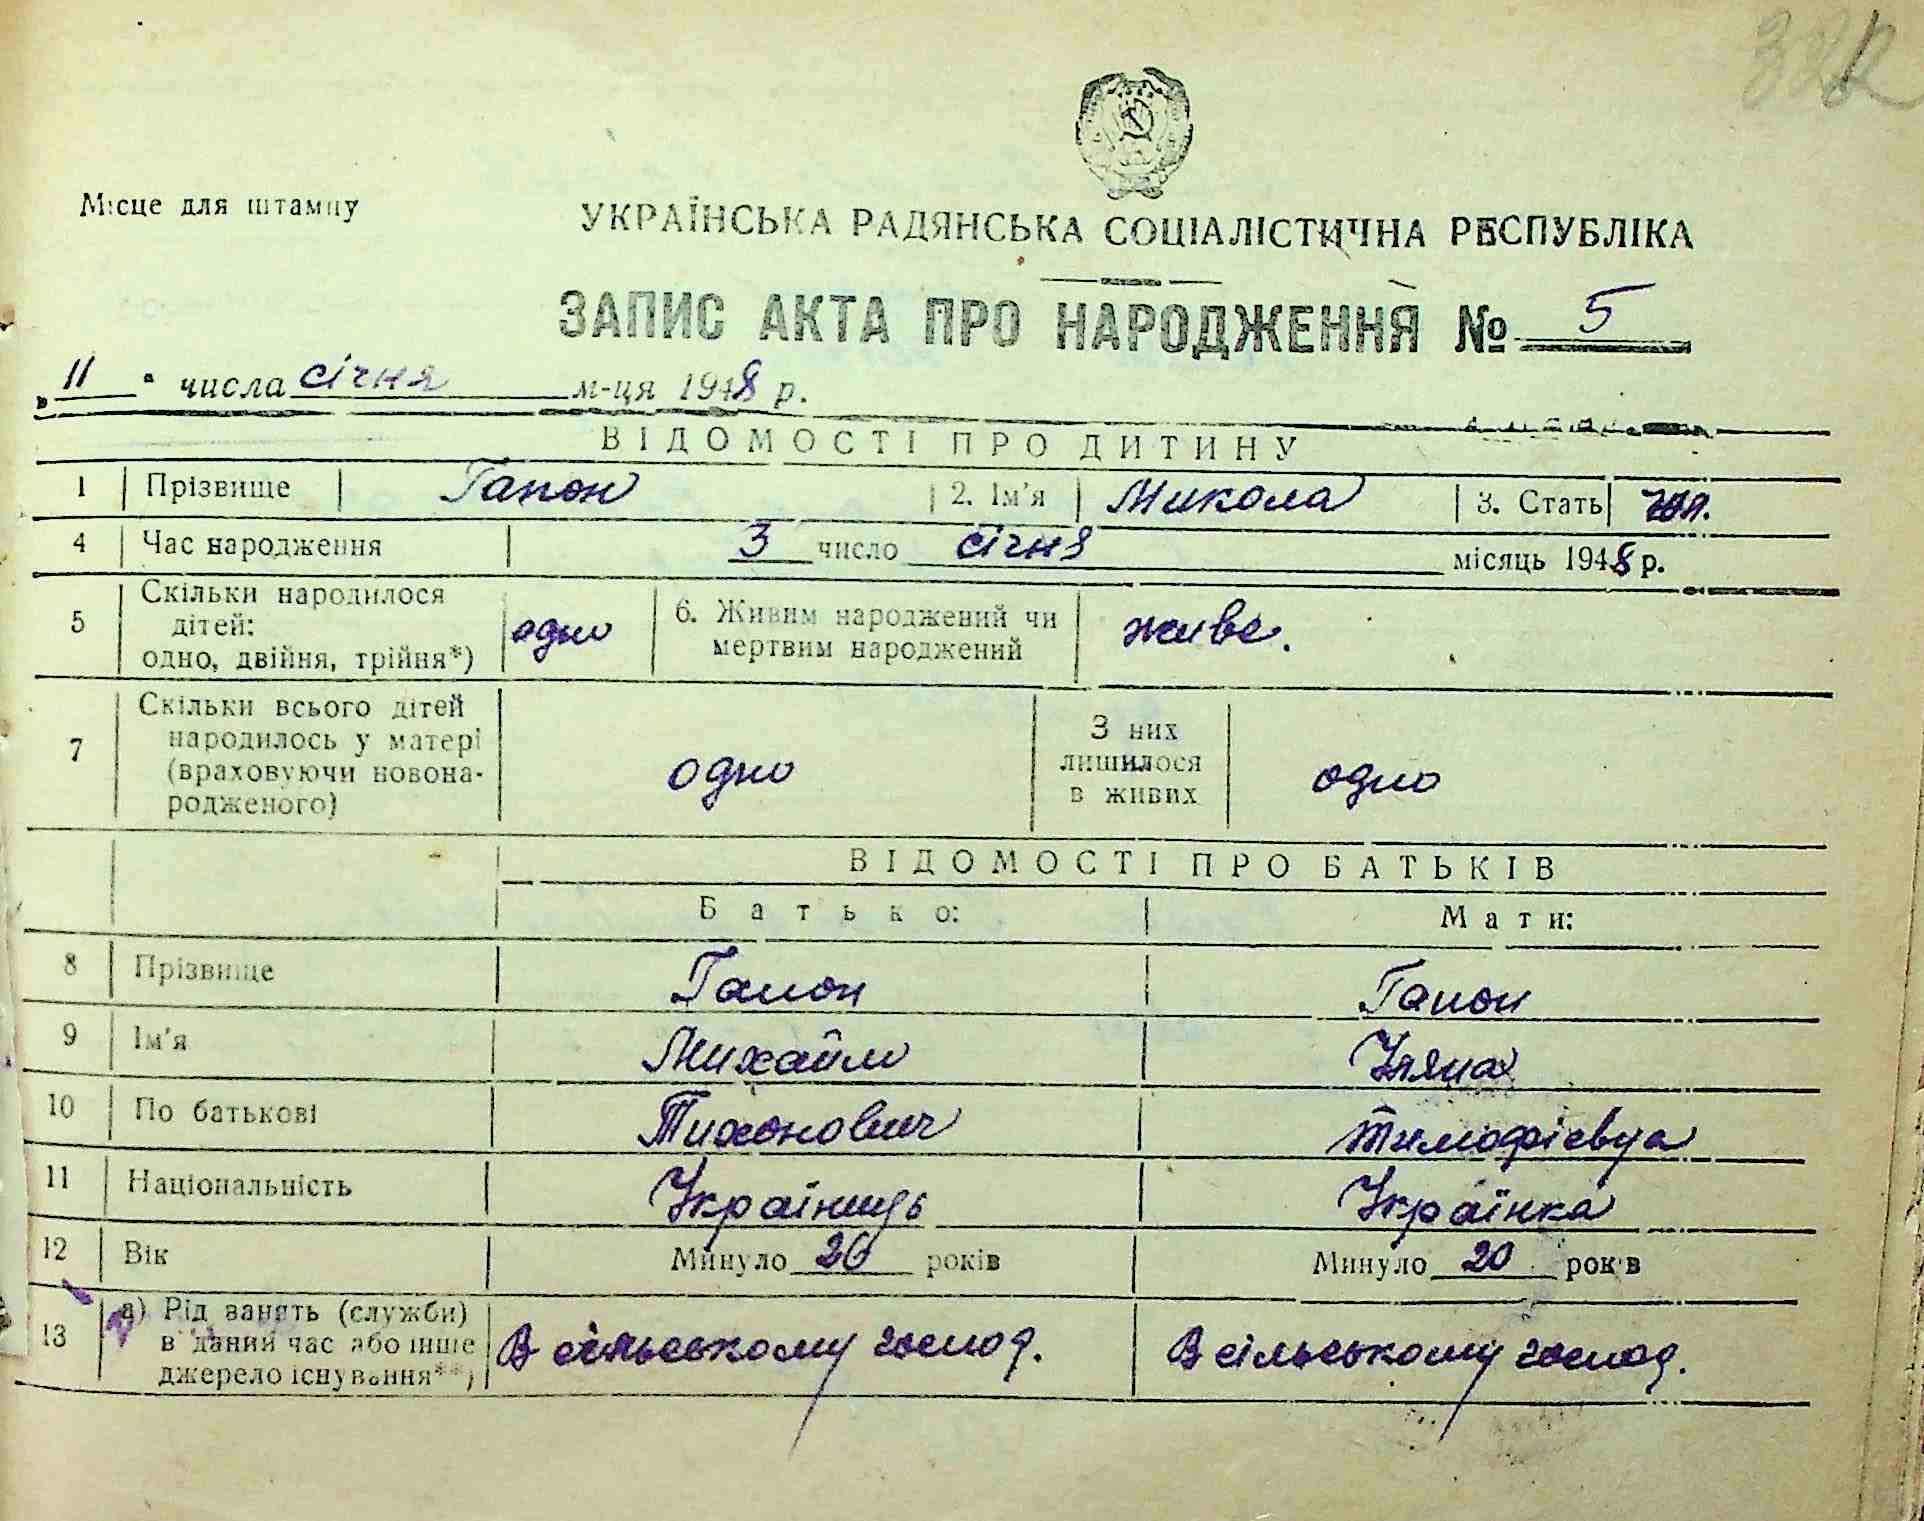 Місце для штампу
УКРАЇНСЬКА РАДЯНСЬКА СОЦІАЛІСТИЧНА РЕСПУБЛІКА
ЗАПИС АКТА ПРО НАРОДЖЕННЯ № 5
„ 11 " числа січня м-ця 1948 р.
ВІДОМОСТІ ПРО ДИТИНУ
1 Прізвище Гапон 2. Ім'я Микола 3. Стать чол.
4 Час народження 3 число січня місяць 1948 р.
5 Скільки народилося дітей: одно, двійня, трійня*) одно 6. Живим народжений чи мертвим народжений живе.
7 Скільки всього дітей народилось у матері (враховуючи новонародженого) одно З них лишилося в живих одно
ВІДОМОСТІ ПРО БАТЬКІВ
Батько: Мати:
8 Прізвище Гапон Гапон
9 Ім'я Михайло Уляна
10 По батькові Тихонович Тимофієвна
11 Національність Українець Українка
12 Вік Минуло 26 років Минуло 20 років
13 а) Рід занять (служби) в даний час або інше джерело існування**) В сільському господ. В сільському господ.